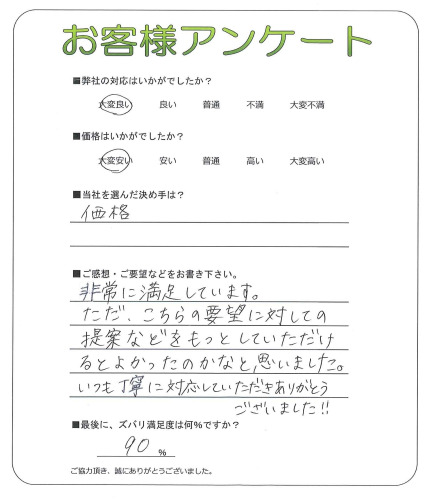 お客様アンケート
■弊社の対応はいかがでしたか？
大変良い 良い 普通 不満 大変不満
■価格はいかがでしたか？
大変安い 安い 普通 高い 大変高い
■当社を選んだ決め手は？
価格
■ご感想・ご要望などをお書き下さい。
非常に満足しています。
ただ、こちらの要望に対しての
提案などをもっとしていただけ
るとよかったのかなと、思いました。
いつも丁寧に対応していただきありがとう
ございました!!
■最後に、ズバリ満足度は何%ですか？
90 %
ご協力頂き、誠にありがとうございました。